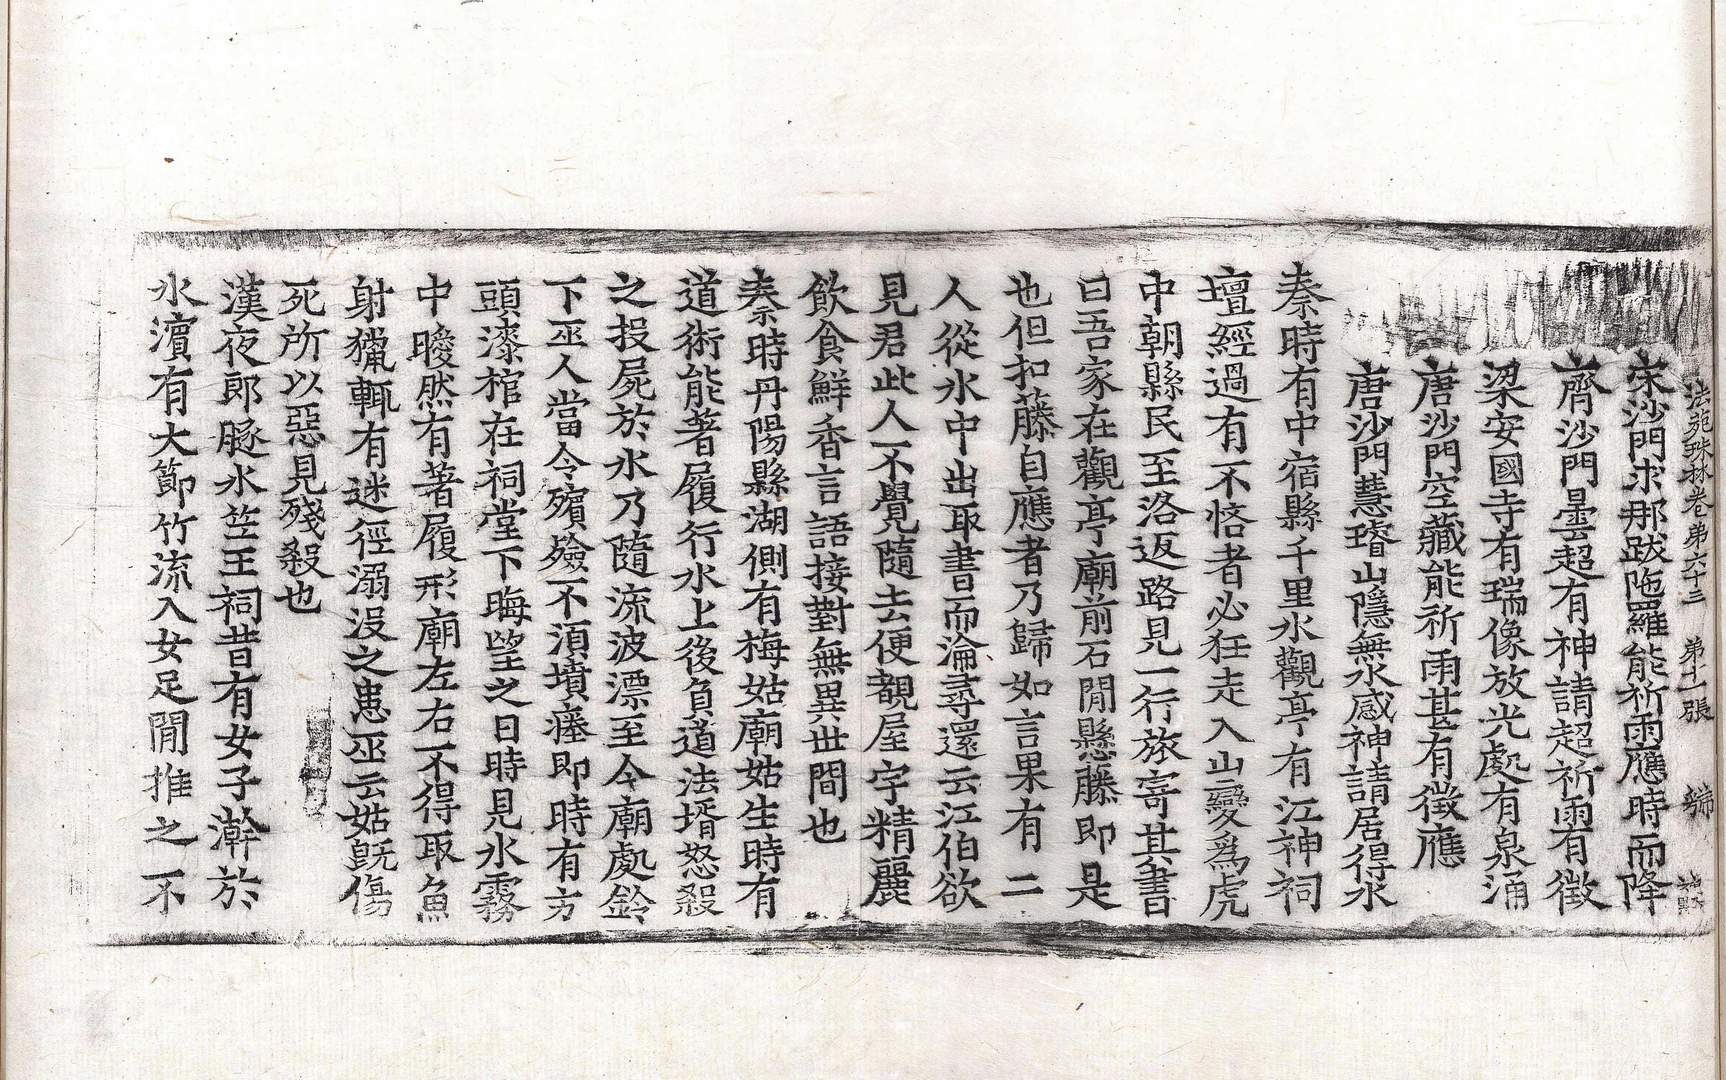 法苑珠林卷第六十三　第十一張　
宋沙門求那跋陁羅能祈雨應時而降
齊沙門曇超有神請超祈雨有徵
梁安國寺有瑞像放光處有泉涌
唐沙門空藏能祈雨甚有徵應
唐沙門慧璿山隱無水感神請居得水
秦時有中宿縣千里水觀亭有江神祠
壇經過有不恪者必狂走入山變爲虎
中朝縣民至洛返路見一行旅寄其書
曰吾家在觀亭廟前石閒懸藤即是
也但扣藤自應者乃歸如言果有二
人從水中出取書而淪尋還云江伯欲
見君此人不覺隨去便覩屋宇精麗
飲食鮮香言語接對無異世間也
秦時丹陽縣湖側有梅姑廟姑生時有
道術能著履行水上後負道法壻怒殺
之投屍於水乃隨流波漂至今廟處鈴
下巫人當令殯殮不須墳瘞即時有方
頭漆棺在祠堂下晦望之日時見水霧
中曖然有著履形廟左右不得取魚
射獵輒有迷徑溺没之患巫云姑既傷
死所以惡見殘殺也
漢夜郎豚水竺王祠昔有女子澣於
水濱有大節竹流入女足閒推之不